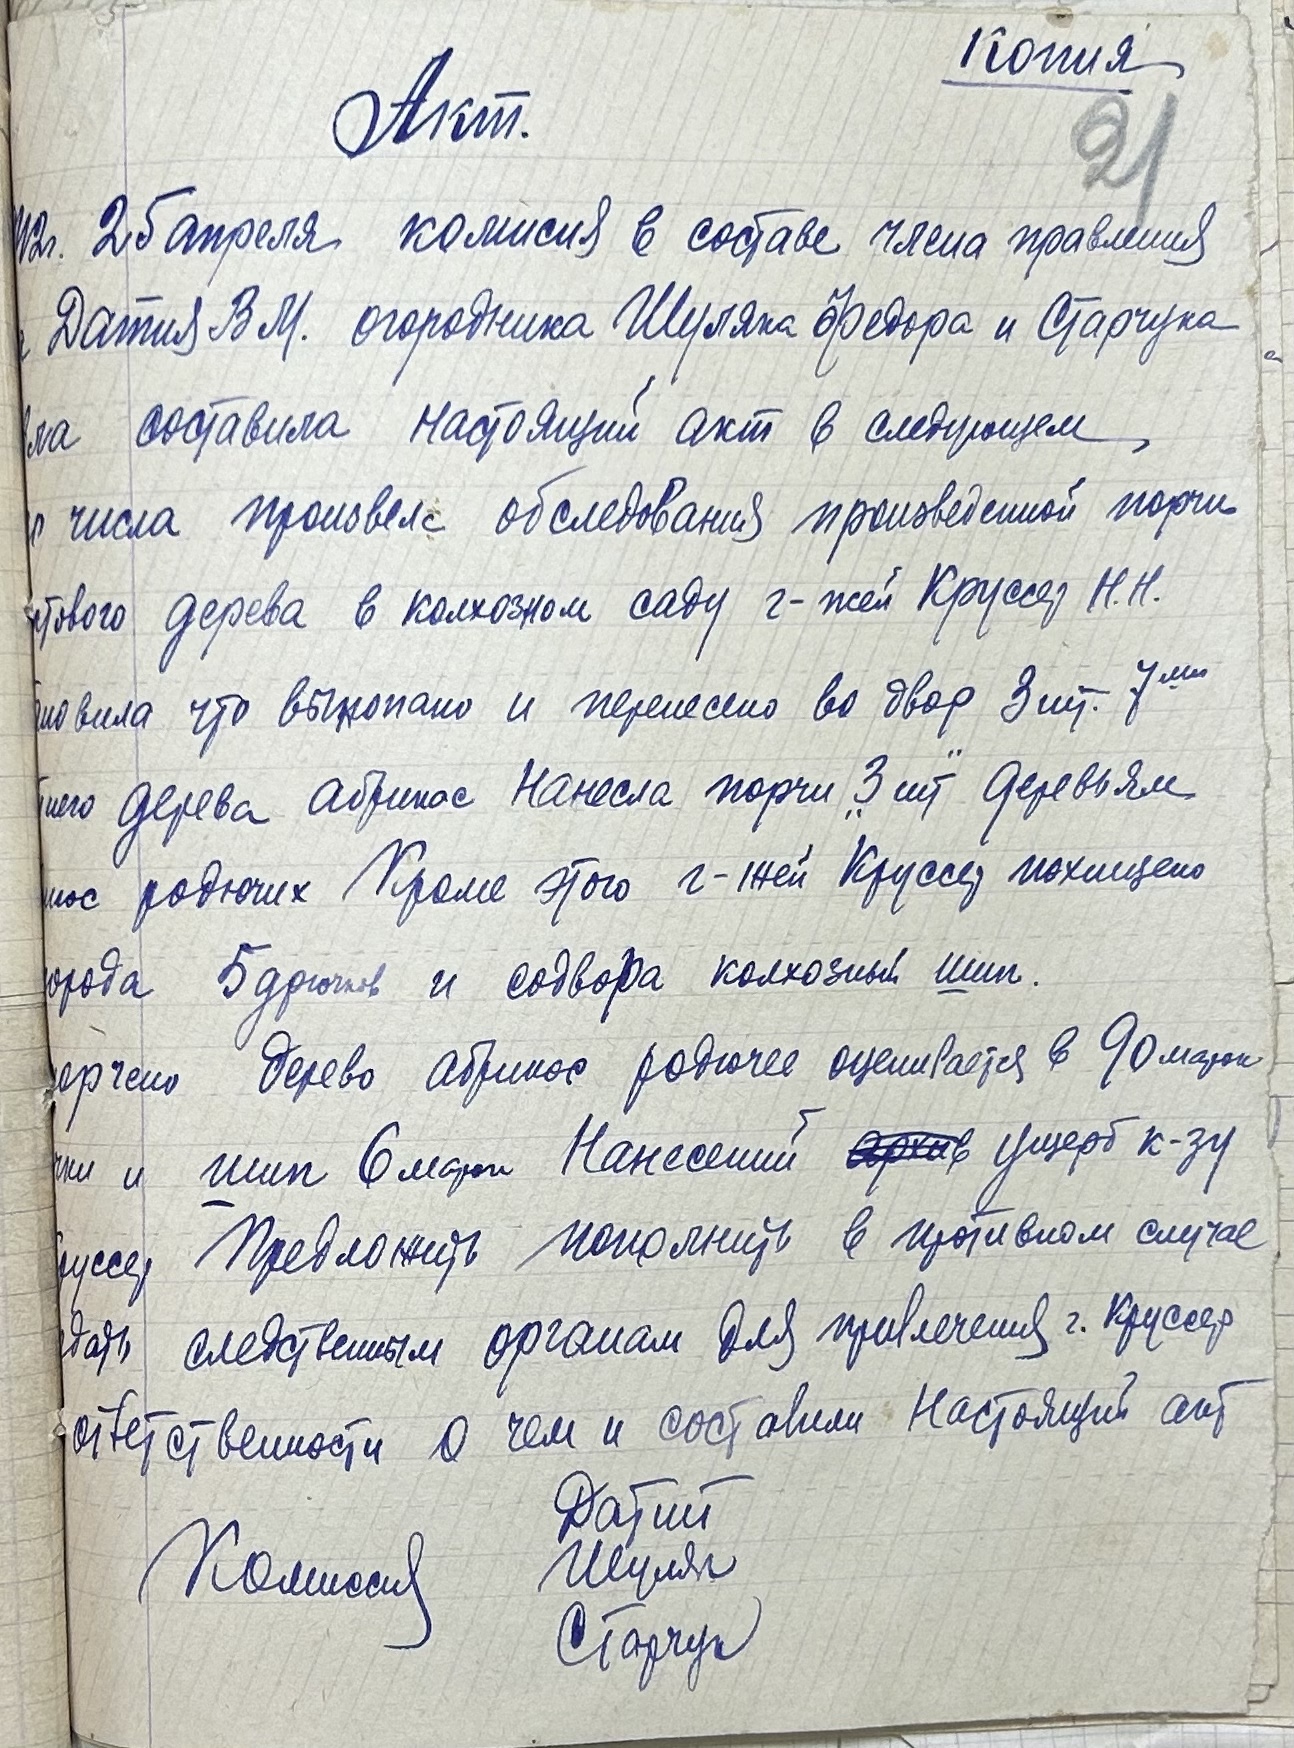 Копия
21
Акт.
42г. 25 апреля комисия в составе члена правления
Датия В М. огородника Шуляка Федора и Старчука
составила настоящий акт в следующем
числа произвела обследования произведенной порчи
дерева в колхозном саду г-жей Круссер Н.Н.
новила что выкопано и перенесено во двор 3 шт. 7ми
тнего дерева абрикос Нанесла порчи "3 шт" деревьям
кос родючих Кроме этого г-жей Круссер похищено
города 5 дрючков и содвора колхозный шип.
орчено дерево абрикос родючее оценивается в 90 марок
чки и шип 6 марок Нанесений ущерб к-зу
руссер Предложить пополнить в противном случае
едать следственным органам для привлечения г. Круссер
ответственности о чем и составили настоящий акт
Датий
Комиссия Шуляк
Старчук